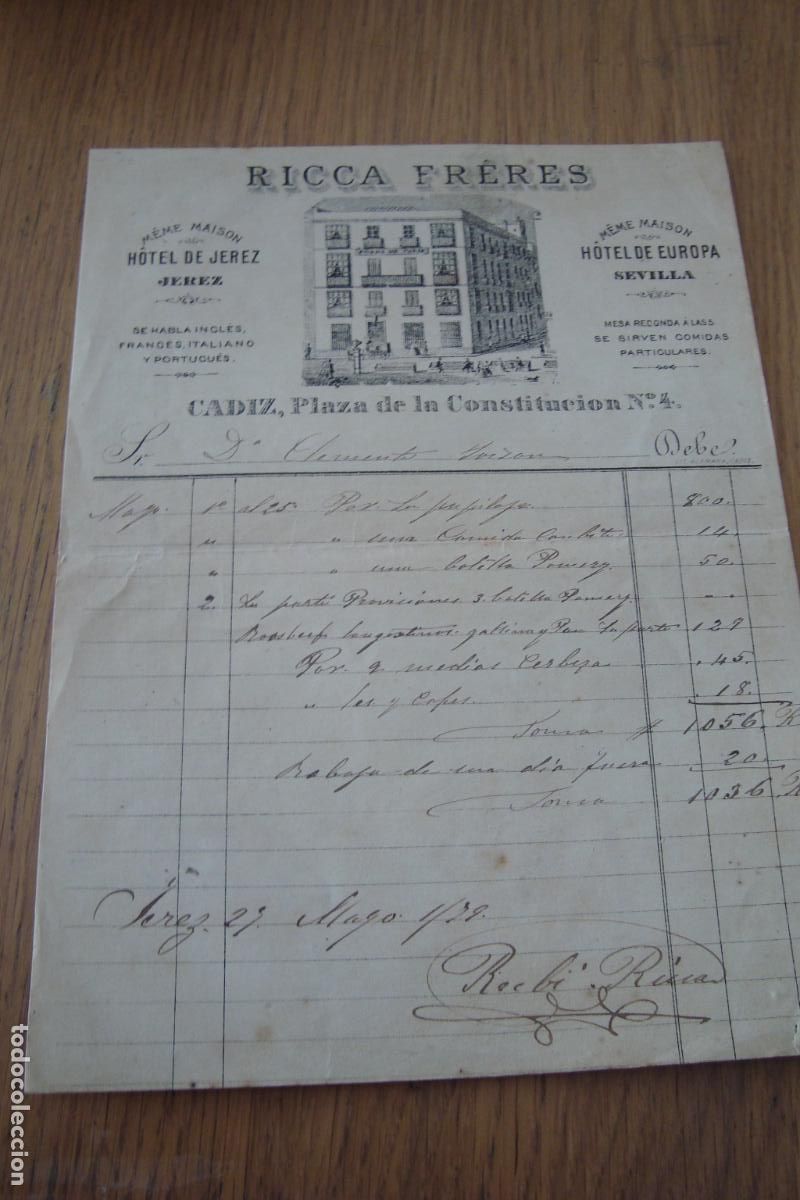 RICCA FRÉRES
MÊME MAISON
HÔTEL DE JEREZ
JEREZ
SE HABLA INGLES,
FRANCES, ITALIANO
Y PORTUGUÉS.
MÊME MAISON
HÔTEL DE EUROPA
SEVILLA
MESA REDONDA Á LAS 5
SE SIRVEN COMIDAS
PARTICULARES.
CADIZ, Plaza de la Constitucion Nº 4.
Sr. Dn Clemente Debe
Mayo. 1º al 25. Por La pupilaje. 800.
" " una Comida Conbite 14.
" " una botella Pomery. 50.
2. Provisiones 3 botella Pomery. "
Roosbeef langostinos gallina y Pan 129
Por 9 medias Cerbeza 45.
" y Cafes. 18.
Soma # 1056. R
Rabaja de una dia fuera 20.
Soma 1036. R
Jerez. 27 Mayo 1/79.
Recbi. Ricca
todocoleccion